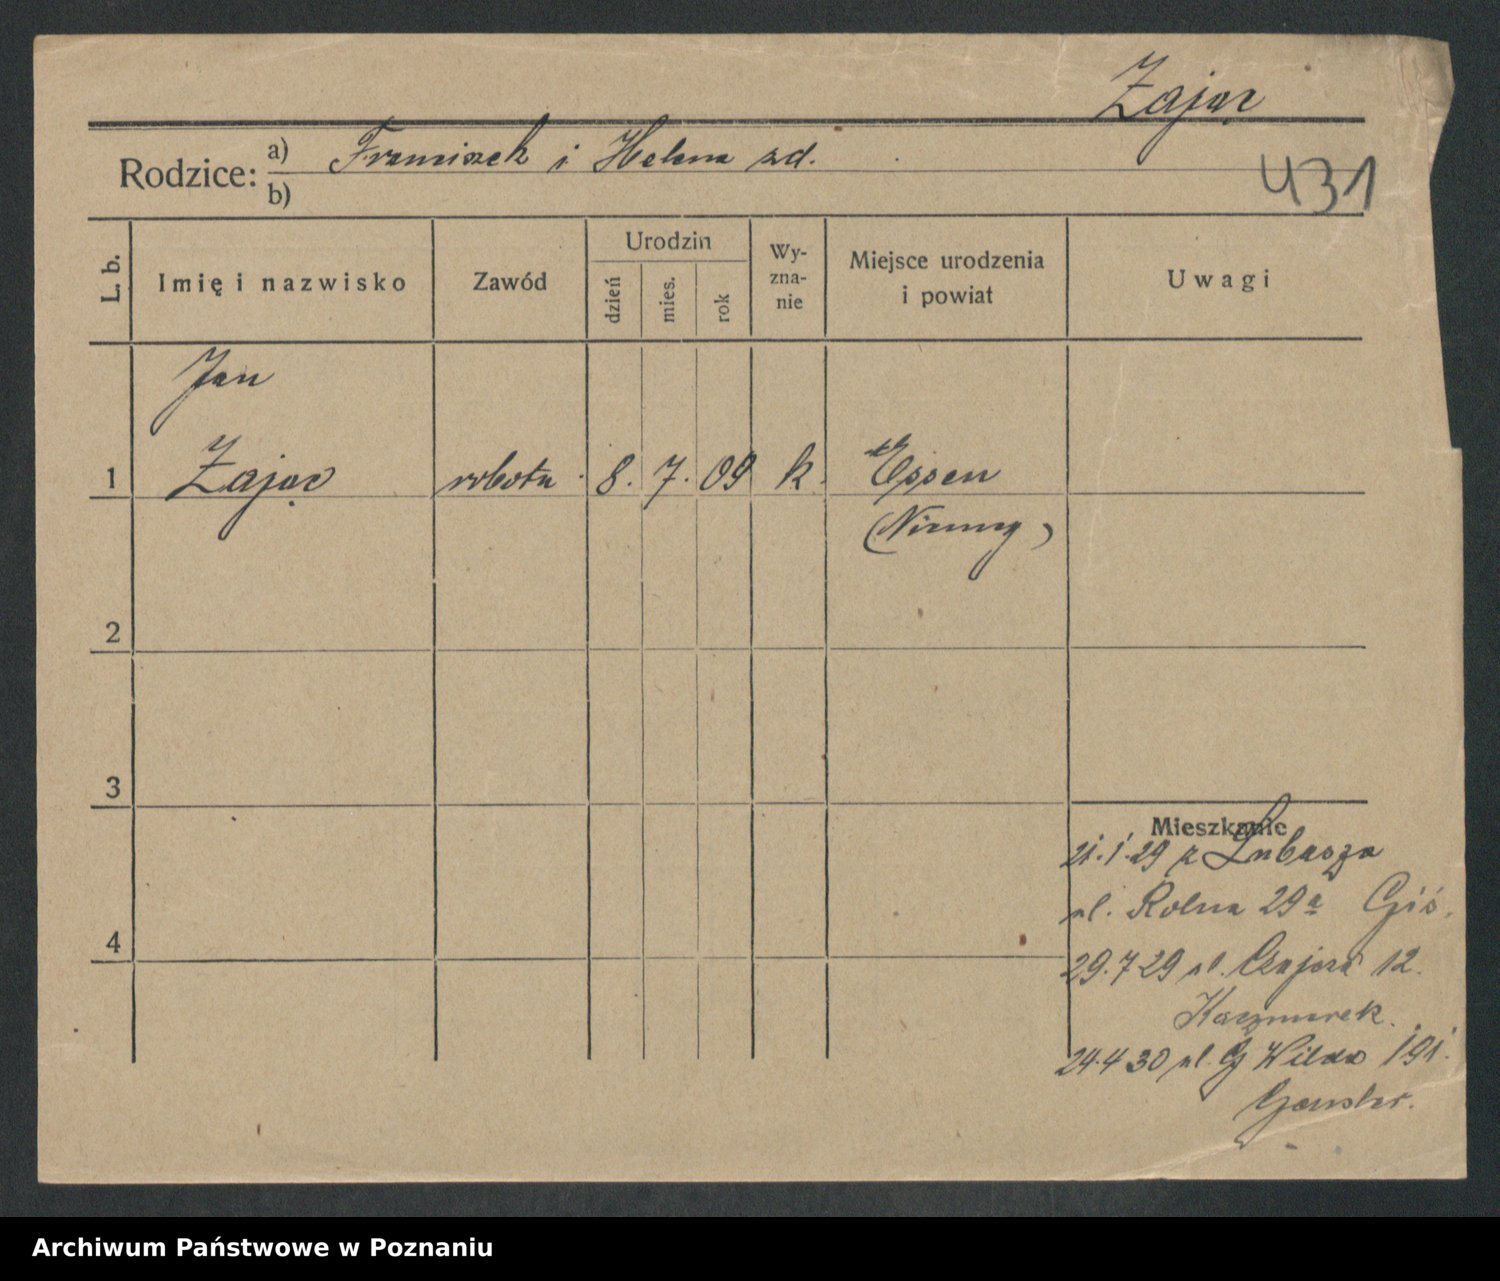 Zając
Rodzice: a) Franciszek i Helena zd.
b)
431
L. b.
Imię i nazwisko
Zawód
Urodzin
dzień
mies.
rok
Wy-
zna-
nie
Miejsce urodzenia
i powiat
Uwagi
Jan
1 Zając robotn. 8. 7. 09 k. Essen
(Niemcy)
2
3
Mieszkanie
21.1.29 z Lubasza
ul. Rolna 29a
4
29.7.29 ul. 12.
Kaczmarek.
24.4.30 ul. G Wilda 191.
Archiwum Państwowe w Poznaniu